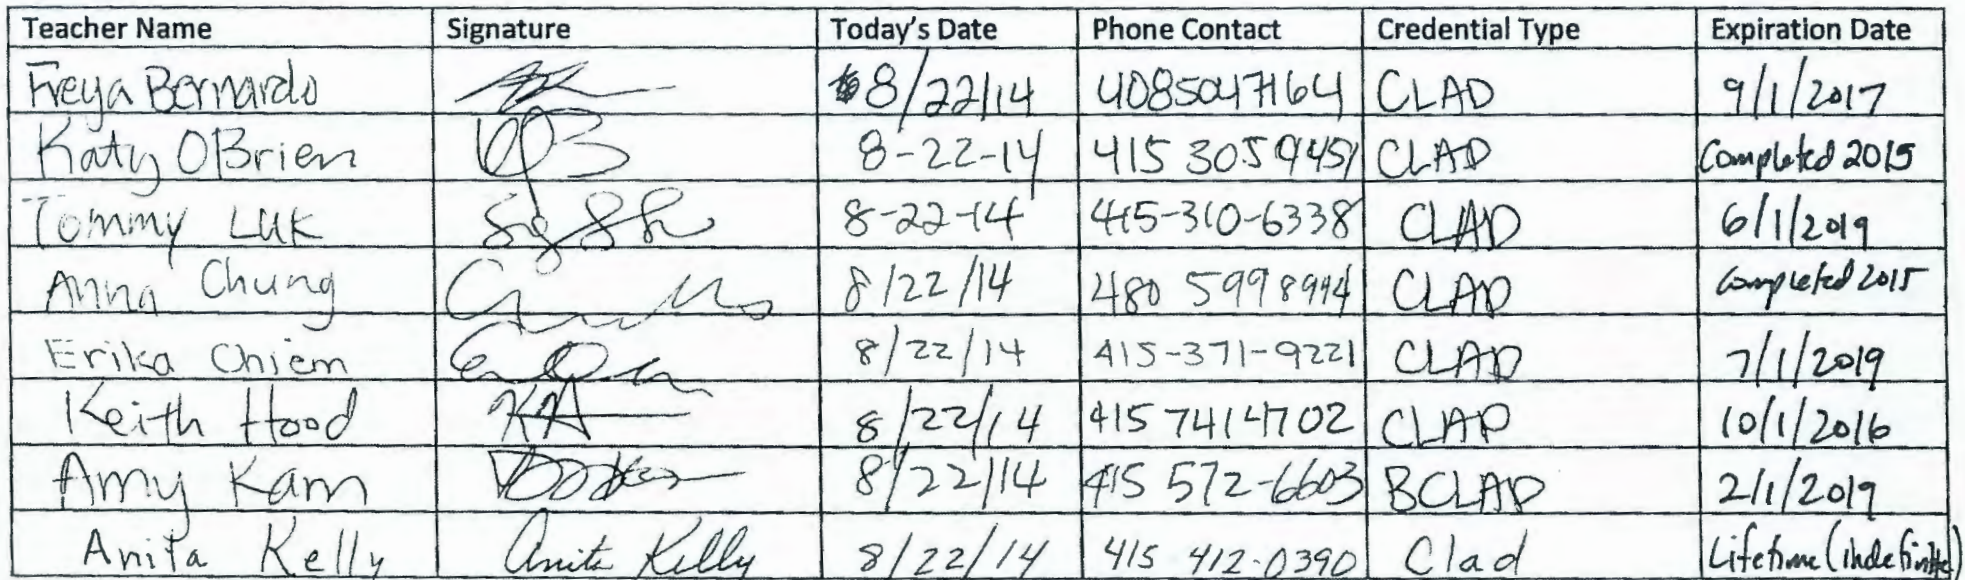 Teacher Name Signature Today's Date Phone Contact Credential Type Expiration Date
Freya Bernardo 8/22/14 4085047164 CLAD 9/1/2017
Katy OBrien 8-22-14 415 305 9451 CLAD Completed 2015
Tommy Luk 8-22-14 415-310-6338 CLAD 6/1/2019
Anna Chung 8/22/14 480 599 8944 CLAD Completed 2015
Erika Chiem 8/22/14 415-371-9221 CLAD 7/1/2019
Keith Hood KH 8/22/14 415 7414702 CLAD 10/1/2016
Amy Kam 8/22/14 415 572-6603 BCLAD 2/1/2019
Anita Kelly Anita Kelly 8/22/14 415 412-0390 Clad Lifetime (indefinite)